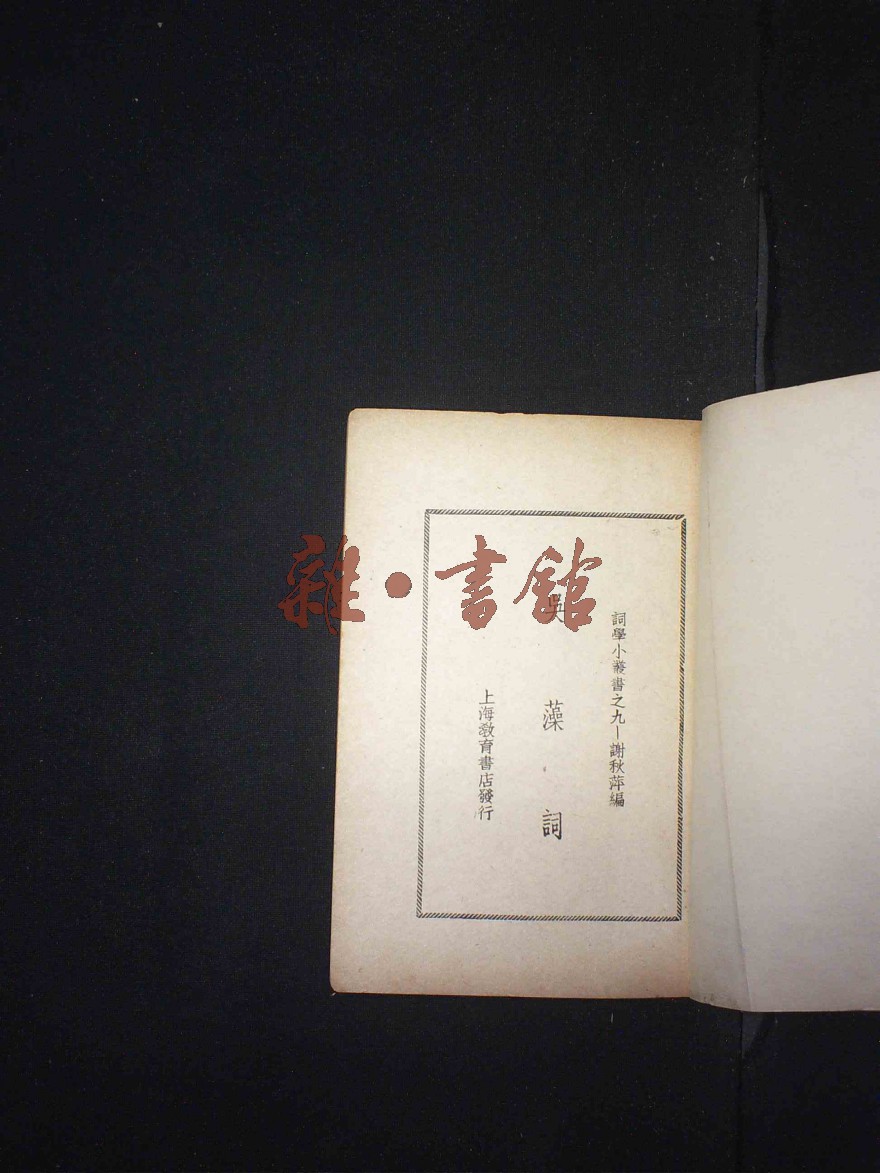 詞學小叢書之九—謝秋萍編
吳藻詞
上海敎育書店發行
雜·書館